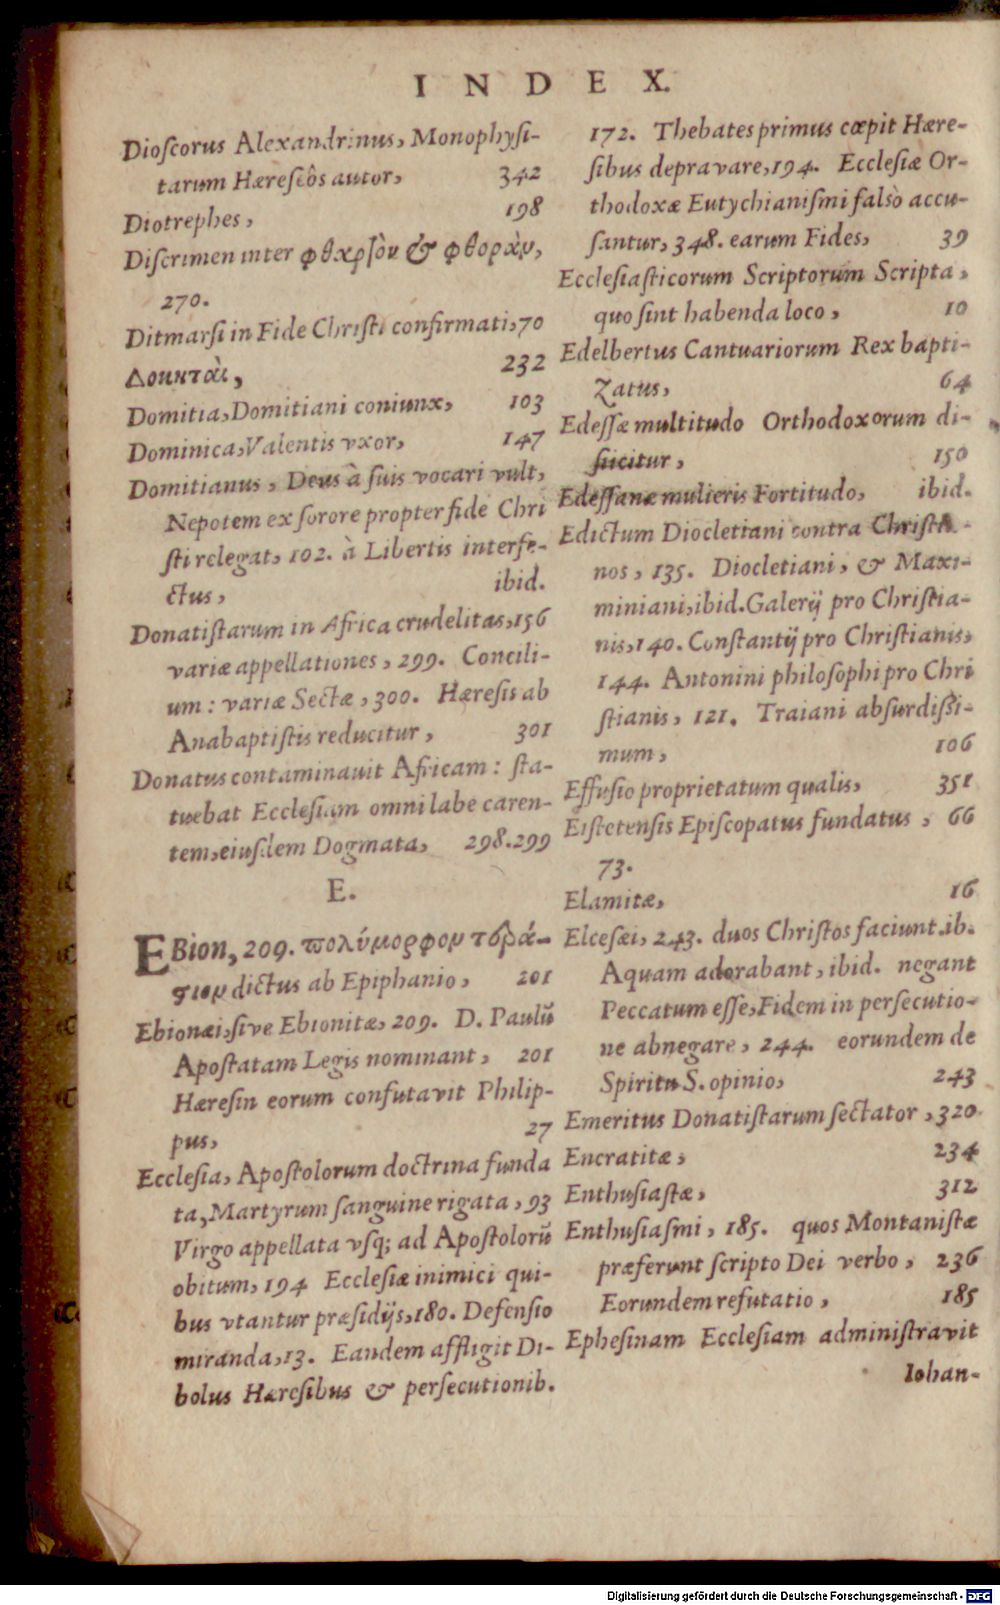 INDEX.
Dioſcorus Alexandrinus, Monophyſi-
tarum Hæreſeôs autor, 342
Diotrephes, 198
Diſcrimen inter φθαρτὸν & φθορὰν,
270.
Ditmarſi in Fide Chriſti confirmati, 70
Δοκηταὶ, 232
Domitia, Domitiani coniunx, 103
Dominica, Valentis vxor, 147
Domitianus, Deus à ſuis vocari vult,
Nepotem ex ſorore propter fidē Chri
ſti relegat, 102. à Libertis interfe-
ctus, ibid.
Donatiſtarum in Africa crudelitas, 156
variæ appellationes, 299. Concili-
um: variæ Sectæ, 300. Hæreſis ab
Anabaptiſtis reducitur, 301
Donatus contaminauit Africam: ſta-
tuebat Eccleſiam omni labe caren-
tem, eiuſdem Dogmata, 298.299
E.
EBion, 209. πολύμορφον τερά-
στιον dictus ab Epiphanio, 201
Ebionæi, ſive Ebionitæ, 209. D. Paulū
Apoſtatam Legis nominant, 201
Hæreſin eorum confutavit Philip-
pus, 27
Eccleſia, Apoſtolorum doctrina funda
ta, Martyrum ſanguine rigata, 93
Virgo appellata vſq; ad Apoſtolorū
obitum, 194 Eccleſiæ inimici qui-
bus vtantur præſidijs, 180. Defenſio
miranda, 13. Eandem affligit Di-
bolus Hæreſibus & perſecutionib.
172. Thebates primus cœpit Hære-
ſibus depravare, 194. Eccleſiæ Or-
thodoxæ Eutychianiſmi falsò accu-
ſantur, 348. earum Fides, 39
Eccleſiaſticorum Scriptorum Scripta,
quo ſint habenda loco, 10
Edelbertus Cantuariorum Rex bapti-
zatus, 64
Edeſſæ multitudo Orthodoxorum di-
ſiicitur, 150
Edeſſanæ mulieris Fortitudo, ibid.
Edictum Diocletiani contra Chriſtia-
nos, 135. Diocletiani, & Maxi-
miniani, ibid. Galerij pro Chriſtia-
nis, 140. Conſtantij pro Chriſtianis,
144. Antonini philoſophi pro Chri
ſtianis, 121. Traiani abſurdiſsi-
mum, 106
Effuſio proprietatum qualis, 351
Eiſtetenſis Epiſcopatus fundatus, 66
73.
Elamitæ, 16
Elceſæi, 243. duos Chriſtos faciunt. ib.
Aquam adorabant, ibid. negant
Peccatum eſſe, Fidem in perſecutio-
ne abnegare, 244. eorundem de
Spiritu S. opinio, 243
Emeritus Donatiſtarum ſectator, 320.
Encratitæ, 234
Enthuſiaſtæ, 312
Enthuſiaſmi, 185. quos Montaniſtæ
præferunt ſcripto Dei verbo, 236
Eorundem refutatio, 185
Epheſinam Eccleſiam adminiſtravit
Iohan-
Digitalisierung gefördert durch die Deutsche Forschungsgemeinschaft - DFG